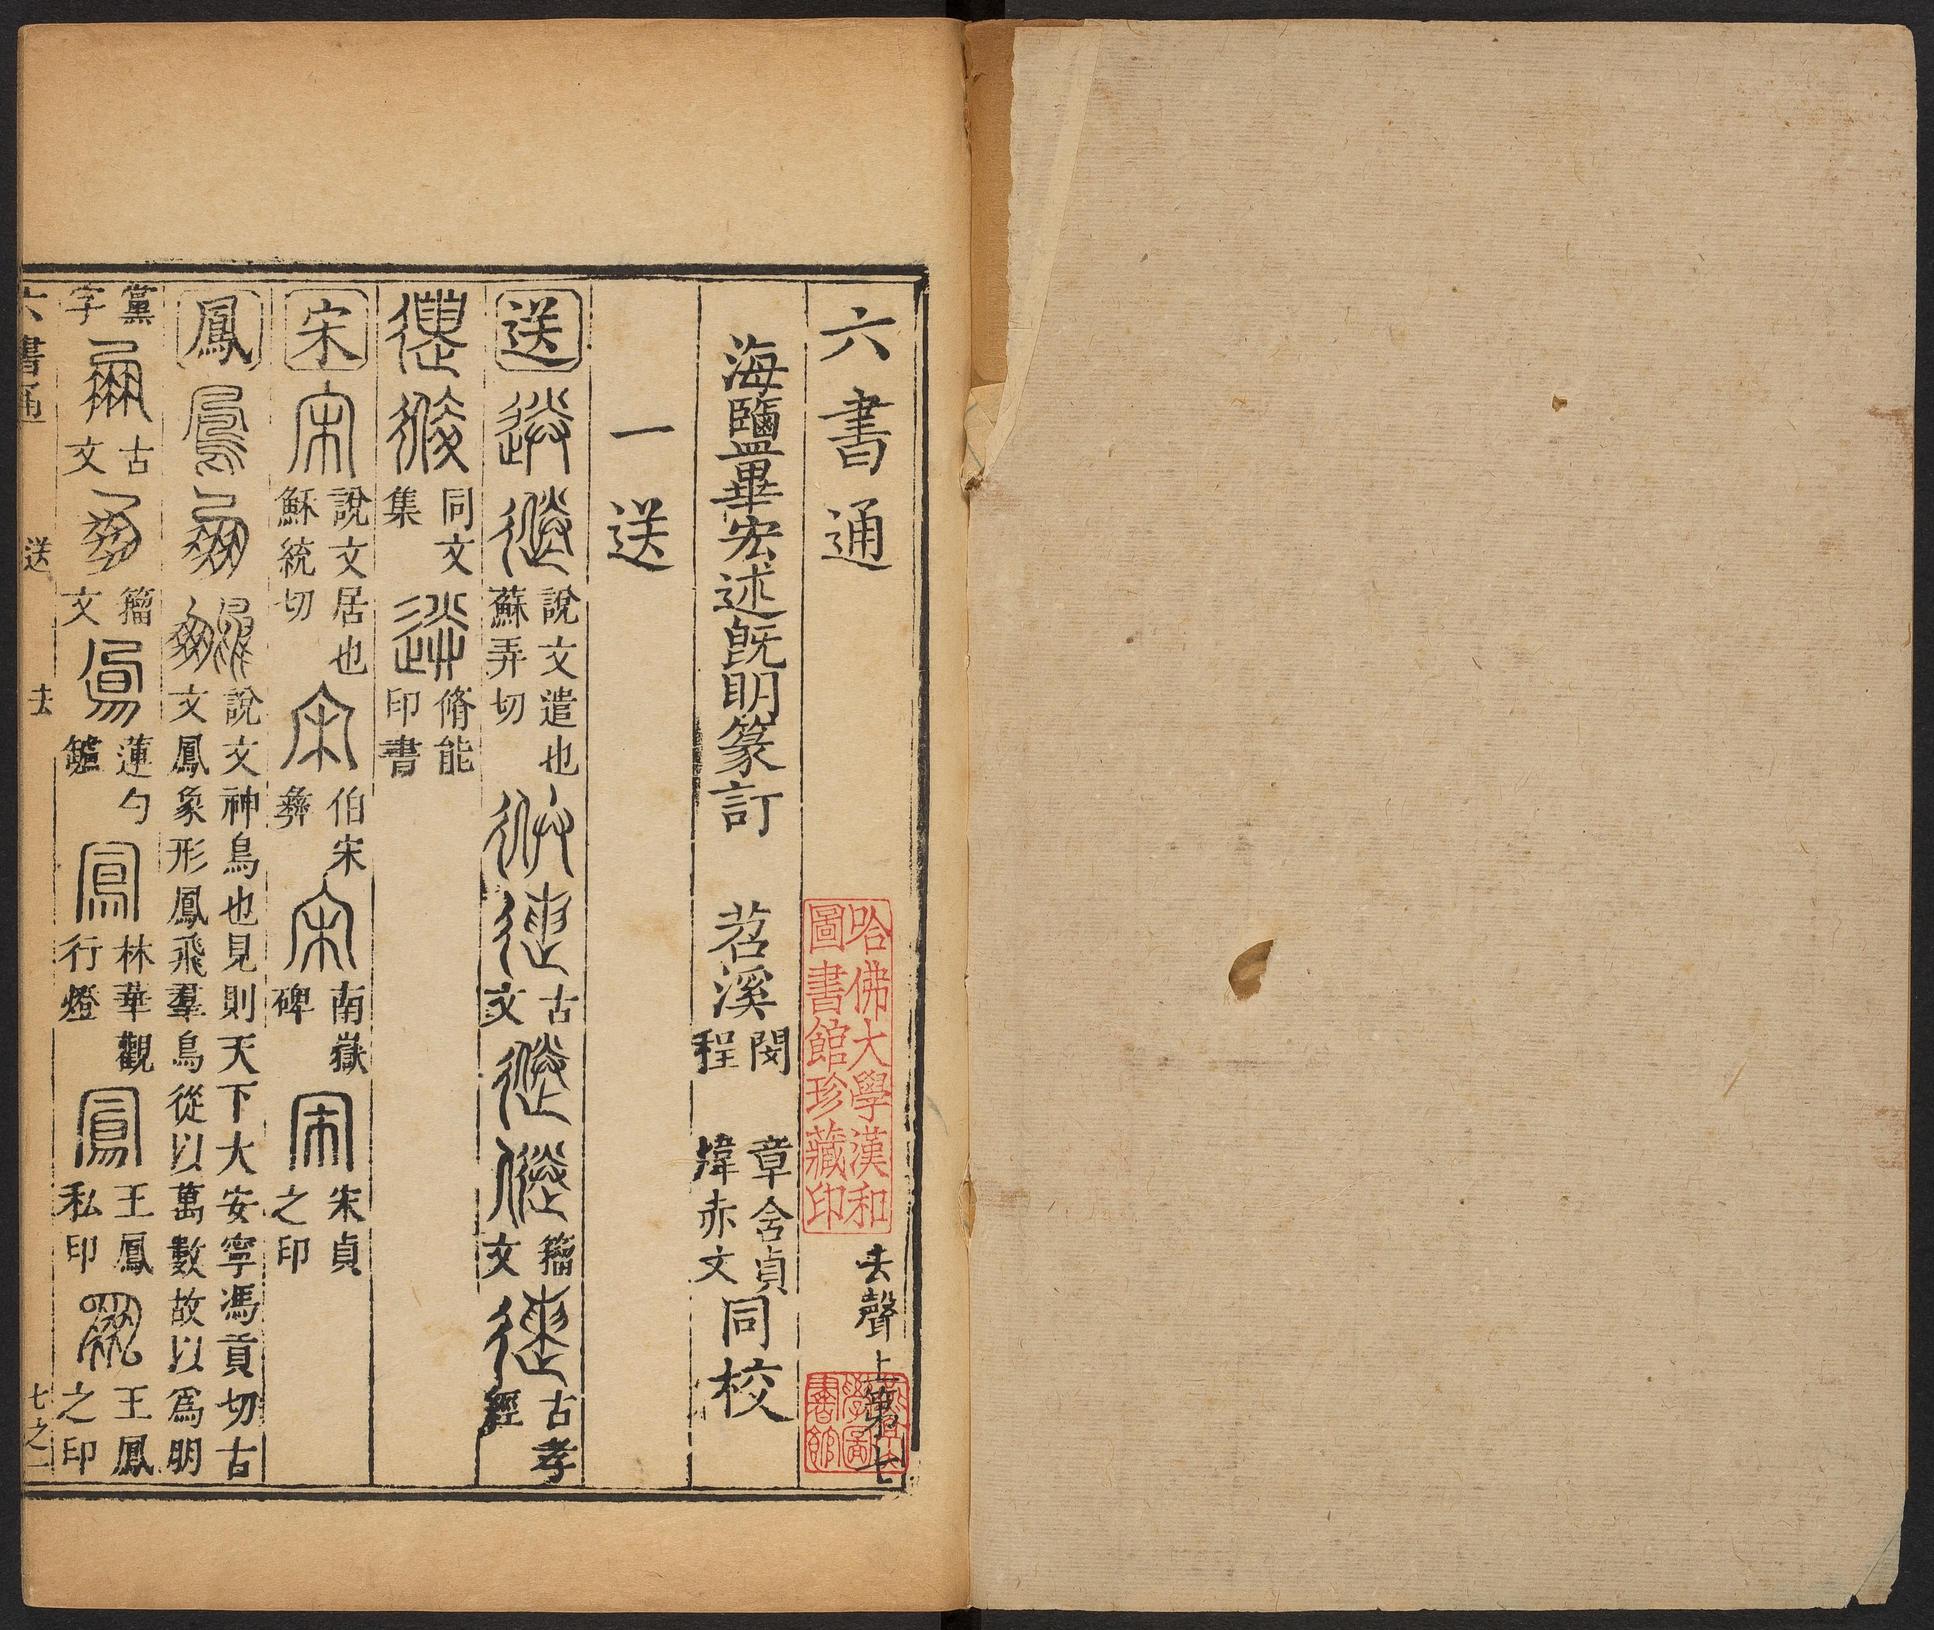 六書通 去聲上第七
哈佛大學漢和圖書館珍藏印
海鹽畢宏述旣明篆訂 苕溪 閔章含貞 程煒赤文 同校
一送
送 說文遣也蘇弄切 古文 籀文 古孝經
同文集 脩能印書
宋 說文居也穌統切 伯宋彝 南嶽碑 宋貞之印
鳳 說文神鳥也見則天下大安寧馮貢切古文鳳象形鳳飛羣鳥從以萬數故以爲朋
黨字 古文 籀文 蓮勺鑪 林華觀行燈 王鳳私印 王鳳之印
六書通 送 去 七之一